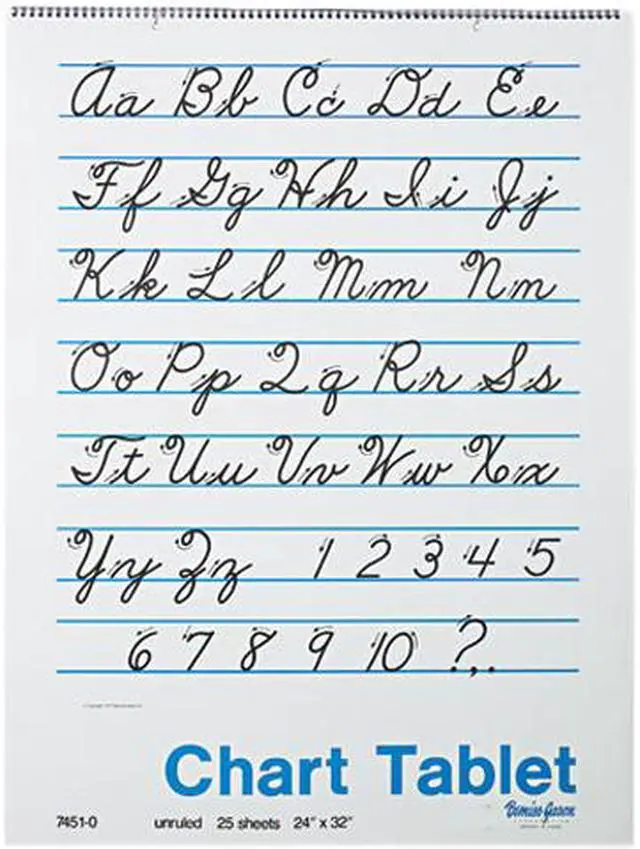 Aa Bb Cc Dd Ee
Ff Gg Hh Ii Jj
Kk Ll Mm Nn
Oo Pp Qq Rr Ss
Tt Uu Vv Ww Xx
Yy Zz 1 2 3 4 5
6 7 8 9 10 ?,.
Chart Tablet
Bemiss-Jason
7451-0 unruled 25 sheets 24" x 32"